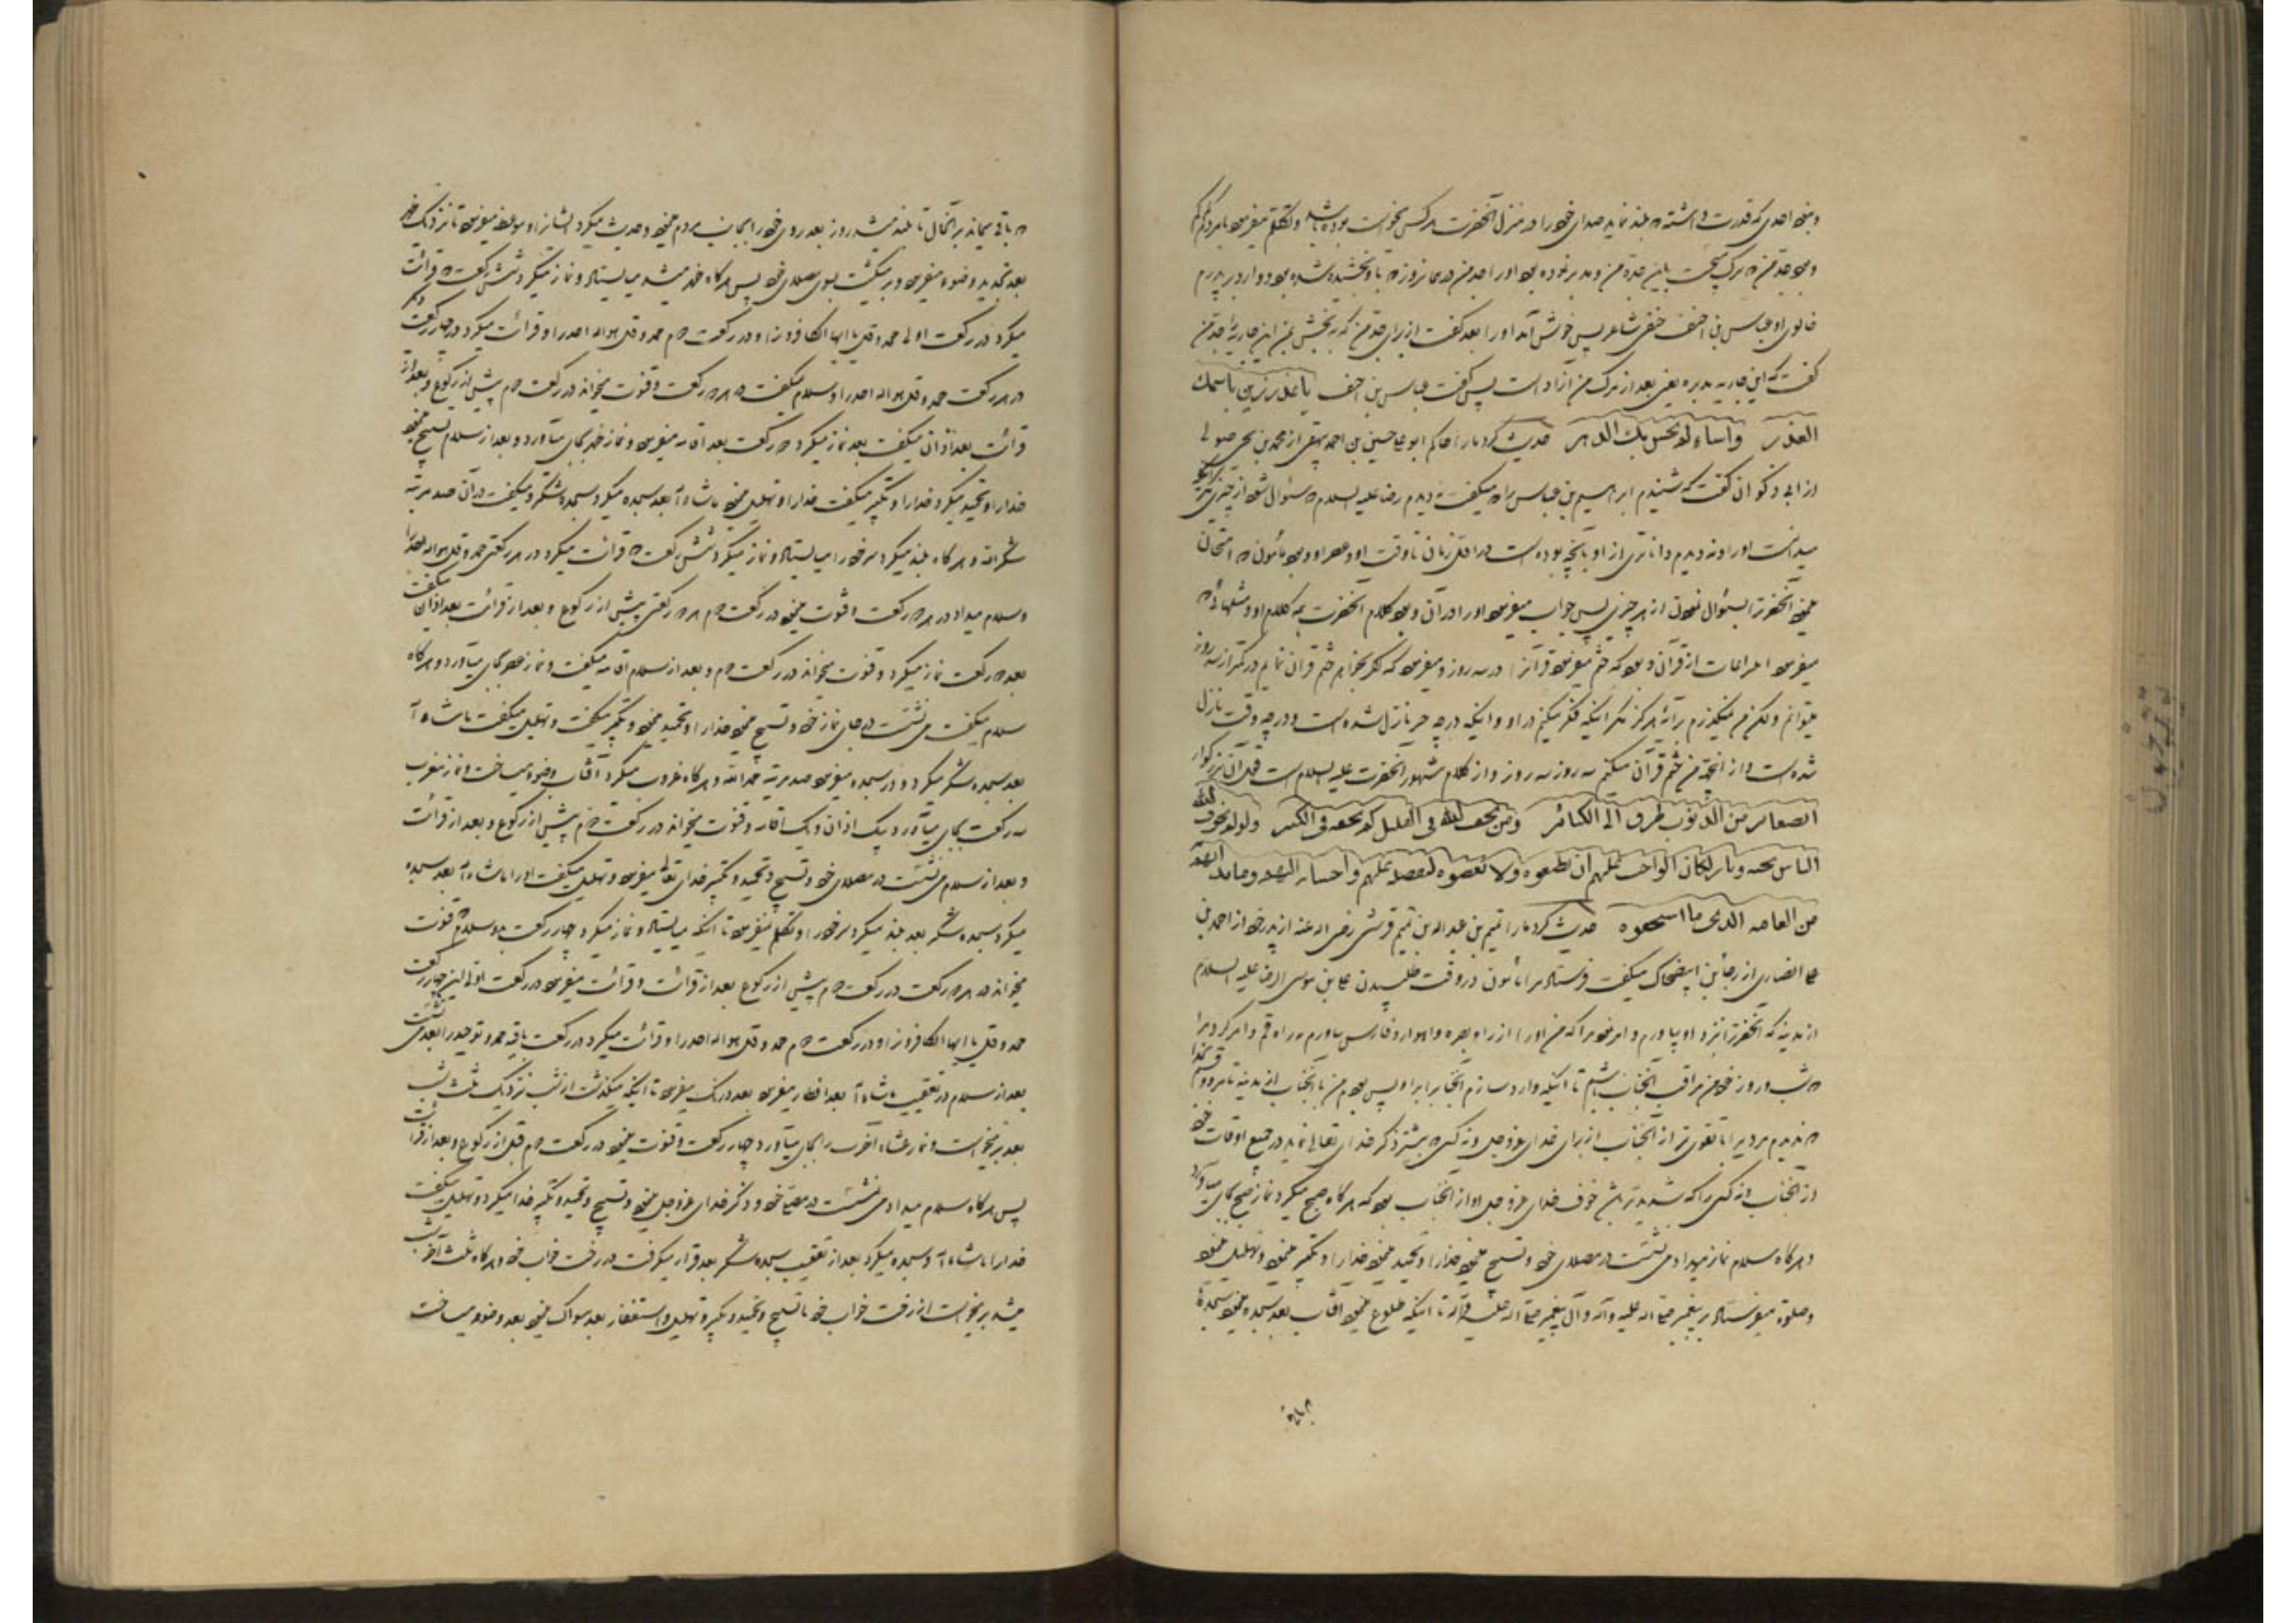 و نبود احدی که قدرت داشته که بلند نماید صدای خود را در منزل آنحضرت هر کس میخواست بوده باشد و تکلم میفرمود با مردم کم کم
و بود جد من
خالوی او عباس بن احنف حنفی شاعر پس خوش آمد او را بعد گفت از برای جد من که ببخش بمن این جاریه را جد من
گفت که این جاریه مدبره یعنی بعد از مرگ من آزاد است پس گفت عباس بن احنف یا عذر زین باسمک
العذر واساء لم یحسن بک الدهر حدیث کرد ما را حاکم ابو علی حسین بن احمد بیهقی از محمد بن یحیی صولی
از ابی ذکوان گفت که شنیدم ابراهیم بن عباس را که میگفت که ندیدم رضا علیه السلام که سئوال شود از چیزی مگر آنکه
میدانست او را و ندیدم داناتری از او بآنچه بوده است در اول زمان تا وقت او و عصر او و بود مأمون که امتحان
مینمود آنحضرترا بسئوال نمودن از هر چیزی پس جواب میفرمود او را در آن و بود کلام آنحضرت همه کلام او و مثلهائی که
میفرمود انتزاعات از قرآن و بود که ختم میفرمود قرآنرا در سه روز و میفرمود که اگر بخواهم ختم قرآن نمایم در کمتر از سه روز
میتوانم و لکن من نمیگذرم بر آیه هرگز مگر اینکه فکر میکنم در او و اینکه در چه چیز نازل شده است و در چه وقت نازل
شده است و از اینجهة من ختم قرآن میکنم سه روز سه روز و از کلام مشهور آنحضرت علیه السلام است قول آن بزرگوار
الصغایر من الذنوب طرق الی الکبائر ومن لم یخف الله فی القلیل لم یخفه فی الکثیر ولو لم یخوف الله
الناس بجنه ونار لکان الواجب علیهم ان یطیعوه ولا یعصوه لتفضله علیهم واحسانه الیهم وما بدأهم
من انعامه الذی ما استحقوه حدیث کرد ما را تمیم بن عبدالله بن تمیم قرشی رضی الله عنه از پدر خود از احمد بن
علی انصاری از رجاء بن ابیضحاک میگفت فرستاد مرا مأمون در وقت طلبیدن علی بن موسی الرضا علیه السلام
از مدینه که آنحضرترا نزد او بیاورم و امر نمود مرا که من او را از راه بصره و اهواز و فارس بیاورم نه راه قم و امر کرد مرا
که شب و روز خود من مراقب آنجناب باشم تا اینکه وارد سازم آنجنابرا بر او پس بودم من با آنجناب از مدینه تا مرو و قسم بخدا
که ندیدم مردیرا با تقوی تر از آنجناب از برای خدای عزوجل و نه کسی که بیشتر ذکر خدای تعالی نماید در جمیع اوقات خود
از آنجناب و نه کسی را که شدیدتر باشد خوف خدای عزوجل او از آنجناب بود که هر گاه صبح میکرد نماز صبح بجای میآورد
و هر گاه سلام نماز میداد می نشست در مصلای خود و تسبیح مینمود خدا را و تحمید مینمود خدا را و تکبیر مینمود و تهلیل مینمود
و صلوة میفرستاد بر پیغمبر صلی الله علیه و آله و آل پیغمبر صلی الله علیه و آله تا اینکه طلوع مینمود آفتاب بعد سجده مینمود سجدهٔ
که باقی میماند بر آنحال تا بلند میشد روز بعد روی خود را بجانب مردم مینمود و حدیث میکرد ایشانرا و موعظه میفرمود تا نزدیک ظهر
بعد تجدید وضو میفرمود و بر میگشت بسوی مصلای خود پس هر گاه ظهر میشد میایستاد و نماز میکرد شش رکعت که قرائت
میکرد در رکعت اولی حمد و قل یا ایها الکافرون را و در رکعت دوم حمد و قل هو الله احد را و قرائت میکرد در چهار رکعت دیگر
در هر رکعت حمد و قل هو الله احد را و سلام میگفت در هر دو رکعت و قنوت میخواند در رکعت دوم پیش از رکوع و بعد از
قرائت بعد اذان میگفت بعد نماز میکرد دو رکعت بعد اقامه میفرمود و نماز ظهر بجای میآورد و بعد از سلام تسبیح مینمود
خدا را و تحمید میکرد خدا را و تکبیر میگفت خدا را و تهلیل مینمود ما شاء الله بعد سجده میکرد سجده شکر و میگفت در آن صد مرتبه
شکراً لله و هر گاه بلند میکرد سر خود را میایستاد و نماز میکرد شش رکعت که قرائت میکرد در هر رکعتی حمد و قل هو الله احد را
و سلام میداد در هر دو رکعت و قنوت مینمود در رکعت دوم هر دو رکعتی پیش از رکوع و بعد از قرائت بعد اذان میگفت
بعد دو رکعت نماز میکرد و قنوت میخواند در رکعت دوم و بعد از سلام اقامه میگفت و نماز عصر بجای میآورد و هر گاه
سلام میگفت می نشست در جای نماز خود و تسبیح مینمود خدا را و تحمید مینمود و تکبیر میگفت و تهلیل میگفت ما شاء الله
بعد سجده شکر میکرد و در سجده میفرمود صد مرتبه حمداً لله و هر گاه غروب میکرد آفتاب وضو میساخت و نماز مغرب
سه رکعت بجای میآورد بیک اذان و یک اقامه و قنوت میخواند در رکعت دوم پیش از رکوع و بعد از قرائت
و بعد از سلام می نشست در مصلای خود و تسبیح و تحمید و تکبیر خدای تعالی میفرمود و تهلیل میگفت او را ما شاء الله بعد سجده
میکرد سجده شکر بعد بلند میکرد سر خود را و تکلم نمیفرمود تا اینکه میایستاد و نماز میکرد چهار رکعت بدو سلام و قنوت
میخواند در هر دو رکعت در رکعت دوم پیش از رکوع بعد از قرائت و قرائت میفرمود در رکعت اولی این چهار رکعت
حمد و قل یا ایها الکافرون را و در رکعت دوم حمد و قل هو الله احد را و قرائت میکرد در رکعت باقیه حمد و توحید را بعد می نشست
بعد از سلام در تعقیب ما شاء الله بعد افطار میفرمود بعد درنگ میفرمود تا اینکه میگذشت از شب نزدیک ثلث شب
بعد بر میخواست و نماز عشاء آخرت را بجای میآورد چهار رکعت و قنوت مینمود در رکعت دوم قبل از رکوع و بعد از قرائت
پس هر گاه سلام میداد می نشست در مصلای خود و ذکر خدای عزوجل مینمود و تسبیح و تحمید و تکبیر خدا میکرد و تهلیل میگفت
خدا را ما شاء الله و سجده میکرد بعد از تعقیب سجده شکر بعد قرار میگرفت در رخت خواب خود و هر گاه ثلث آخر شب
میشد بر میخواست از رخت خواب خود با تسبیح و تحمید و تکبیر و تهلیل و استغفار بعد سواک مینمود بعد وضو میساخت